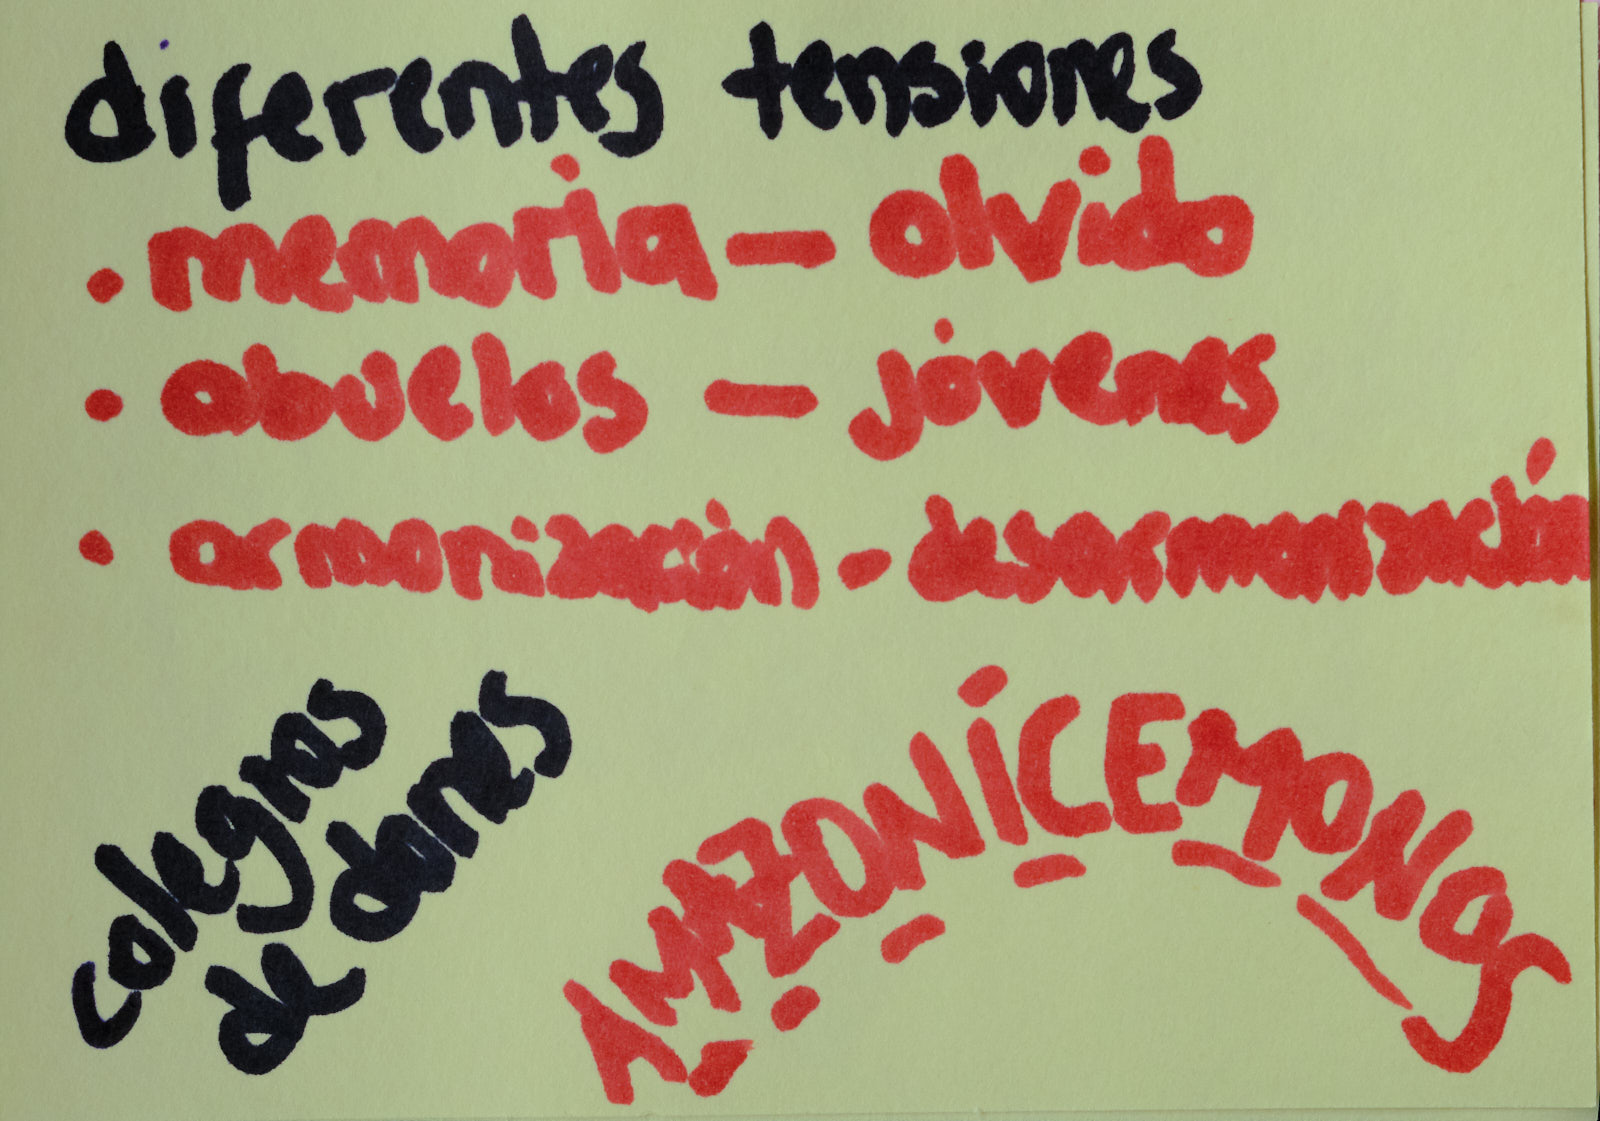 diferentes tensiones
• memoria — olvido
• abuelos — jóvenes
• armonización - desarmonización
colegnas
de dones
AMAZONICEMONOS